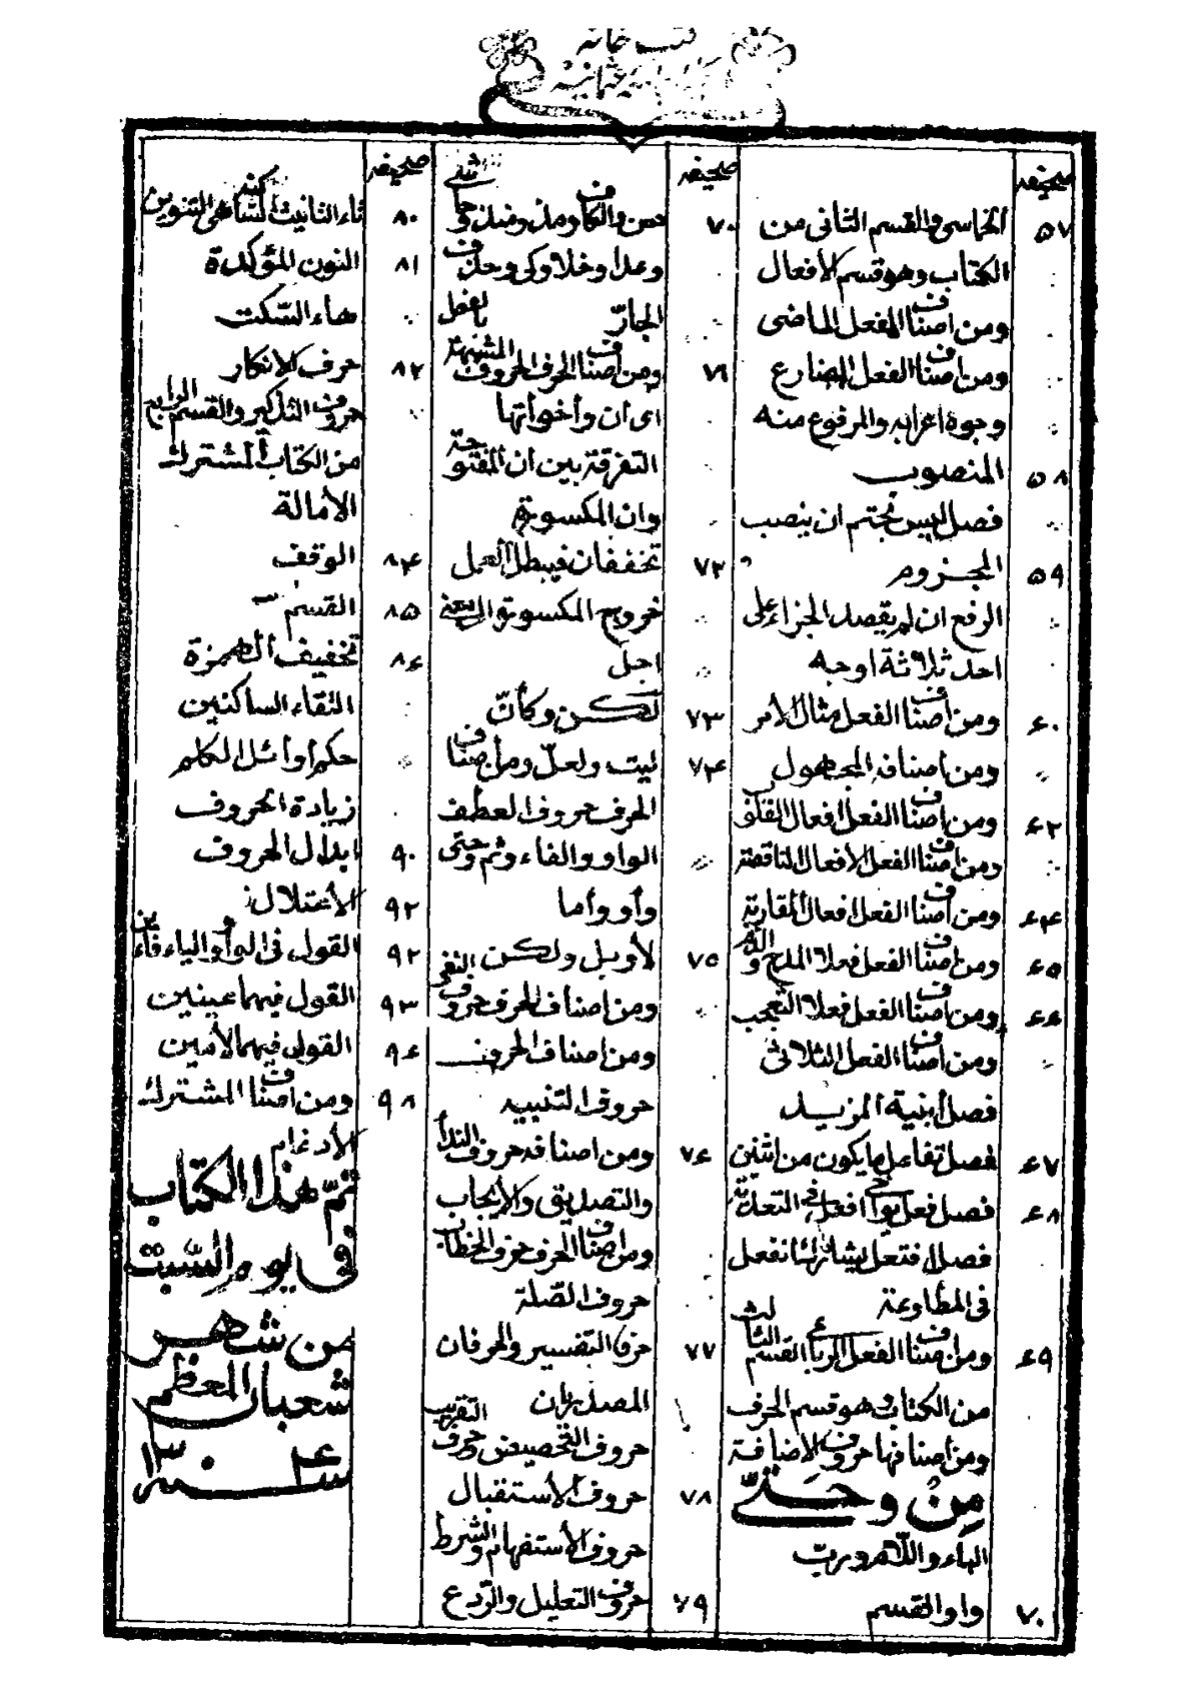 كتب خانه
عثمانيه
صحيفه
٥٧ الخماسى والقسم الثانى من
الكتاب وهو قسم الأفعال
ومن اصناف الفعل الماضى
ومن اصناف الفعل المضارع
وجوه اعرابه والمرفوع منه
٥٨ المنصوب
فصل ليس بحتم ان ينصب
٥٩ المجزوم
الرفع ان لم يقصد الجزاء على
احد ثلاثة اوجه
٦٠ ومن اصناف الفعل مثال الأمر
ومن اصنافه المجهول
٦٢ ومن اصناف الفعل افعال القلوب
ومن اصناف الفعل الأفعال الناقصة
٦٤ ومن اصناف الفعل افعال المقاربة
٦٥ ومن اصناف الفعل فعلا المدح والذم
٦٦ ومن اصناف الفعل فعلا التعجب
ومن اصناف الفعل الثلاثى
فصل أبنية المزيد
٦٧ فصل تفاعل ما يكون من اثنين
٦٨ فصل فعل يواخى افعل فى التعدية
فصل افتعل يشارك انفعل
فى المطاوعة
٦٩ ومن اصناف الفعل الرباعى القسم الثالث
من الكتاب وهو قسم الحرف
ومن اصنافها حروف الإضافة
مِنْ وحتّى
الباء واللام وربّ
٧٠ واو القسم
صحيفه
٧٠ وعن والكاف ومذ ومنذ وحاشى
وعدا وخلا وكى وحذف
الجارّ بالفعل
٧١ ومن اصناف الحرف الحروف المشبهة
اى ان وأخواتها
التفرقة بين ان المفتوحة
وان المكسورة
٧٢ تخففان فيبطل العمل
خروج المكسورة الى معنى
اجل
٧٣ لكن وكأنّ
٧٤ ليت ولعلّ ومن أصناف
الحرف حروف العطف
الواو والفاء وثم وحتى
وأو وأما
٧٥ لا وبل ولكن
ومن اصناف الحرف حروف النفى
ومن اصناف الحرف
حروف التنبيه
٧٦ ومن اصنافه حروف الندأ
والتصديق والإيجاب
ومن اصناف الحرف حرف الخطاب
حروف الصّلة
٧٧ حرفا التفسير والحرفان
المصدريان
حروف التحضيض وحرف التقريب
٧٨ حروف الأستقبال
حروف الأستفهام والشرط
٧٩ حروف التعليل والرّدع
صحيفه
٨٠ تاء التانيث الساكنه التنوين
٨١ النون المؤكدة
هاء السّكت
٨٢ حرف الانكار
حروف التذكير والقسم الرابع
من الكتاب المشترك
الأمالة
٨٤ الوقف
٨٥ القسم
٨٦ تخفيف الهمزة
التقاء الساكنين
حكم أوائل الكلم
زيادة الحروف
٩٠ ابدال الحروف
٩٢ الأعتلال
٩٢ القول فى الواو والياء فائين
٩٣ القول فيهما عينين
٩٤ القول فيهما لأمين
٩٨ ومن اصناف المشترك
الأدغام
تمّ هذا الكتاب
فى يوم السّبت
من شهر
شعبان المعظم